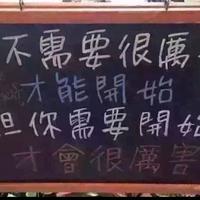 不需要很厲
才能開始
但你需要開始
才會很厲害